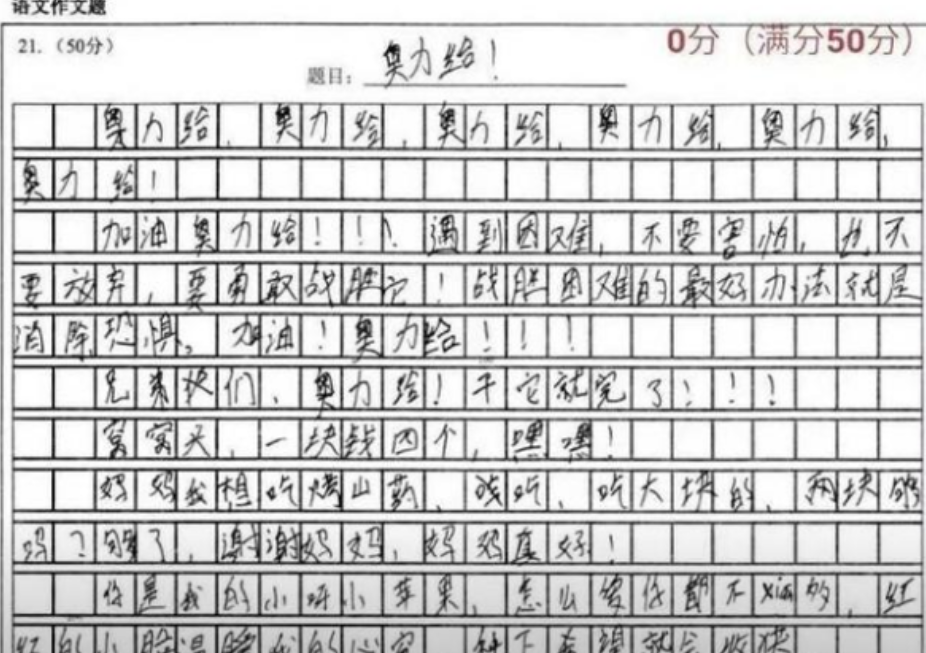 语文作文题
21.（50分）
0分（满分50分）
题目：奥力给！
奥力给，奥力给，奥力给，奥力给，奥力给，
奥力给！
加油奥力给！！！遇到困难，不要害怕，也不
要放弃，要勇敢战胜它！战胜困难的最好办法就是
消除恐惧。加油！奥力给！！！
兄弟们，奥力给！干它就完了！！！
窝窝头，一块钱四个，嘿嘿！
妈妈我想吃烤山药，戗吃，吃大块的，两块够
吗？够了，谢谢妈妈，妈妈真好！
你是我的小呀小苹果，怎么爱你都不xian的，红
红的小脸温暖我的心窝，种下希望就会收获